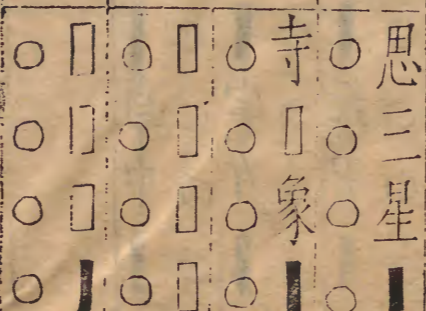 思三星■
○○○○
寺□象■
○○○○
□□□□
○○○○
□□□■
○○○○